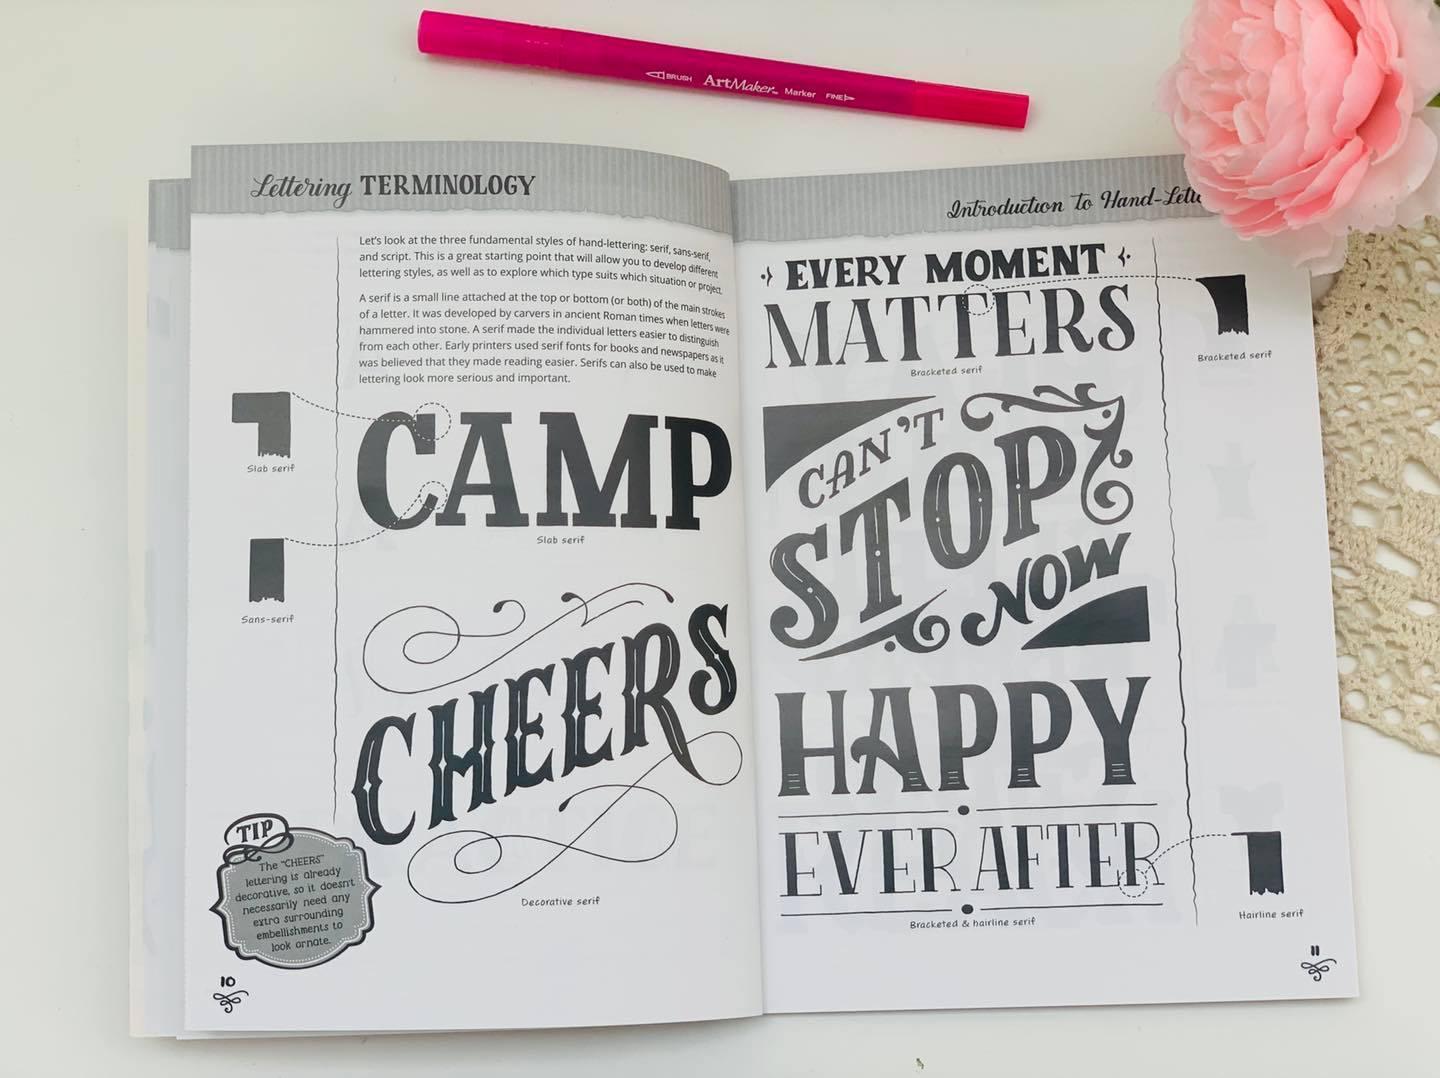 BRUSH ArtMaker™ Marker FINE
Lettering TERMINOLOGY
Let's look at the three fundamental styles of hand-lettering: serif, sans-serif,
and script. This is a great starting point that will allow you to develop different
lettering styles, as well as to explore which type suits which situation or project.
A serif is a small line attached at the top or bottom (or both) of the main strokes
of a letter. It was developed by carvers in ancient Roman times when letters were
hammered into stone. A serif made the individual letters easier to distinguish
from each other. Early printers used serif fonts for books and newspapers as it
was believed that they made reading easier. Serifs can also be used to make
lettering look more serious and important.
Slab serif
CAMP
Slab serif
Sans-serif
CHEERS
Decorative serif
TIP
The "CHEERS"
lettering is already
decorative, so it doesn't
necessarily need any
extra surrounding
embellishments to
look ornate.
10
Introduction to Hand-Lette
EVERY MOMENT
MATTERS
Bracketed serif
Bracketed serif
CAN'T
STOP
NOW
HAPPY
EVER AFTER
Bracketed & hairline serif
Hairline serif
11